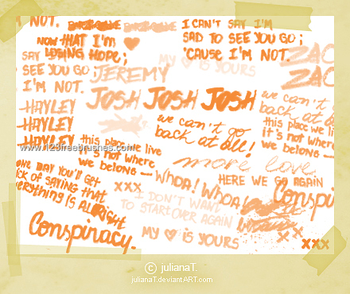 NOW THAT I'M
SAY LOSING HOPE;
SEE YOU GO
I'M NOT.
JEREMY
I CAN'T SAY I'M
SAD TO SEE YOU GO;
'CAUSE I'M NOT.
ZAC
ZAC
MY IS YOURS
JOSH JOSH JOSH
HAYLEY
HAYLEY
HAYLEY
www.123freebrushes.com
this place we live
it's not where
we belong
we can't go
back at all!
we can't g
back at all
this place we live
it's not where
we belong
more love
HERE WE GO AGAIN
WHOA! WHOA!
ONE DAY YOU'LL GET
SICK OF SAYING THAT
EVERYTHING IS ALRIGHT
XXX
I DON'T WANT
TO START OVER AGAIN
Conspi
Conspiracy.
MY ♥ IS YOURS
xxx
© julianaT.
julianaT.deviantART.com